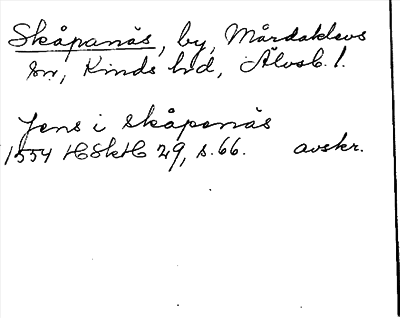 Skåpanäs, by, Mårdaklevs
sn, Kinds hd, Älvsb. l.
Jens i Skåpenäs
1554 HSkH 29, s. 66. avskr.